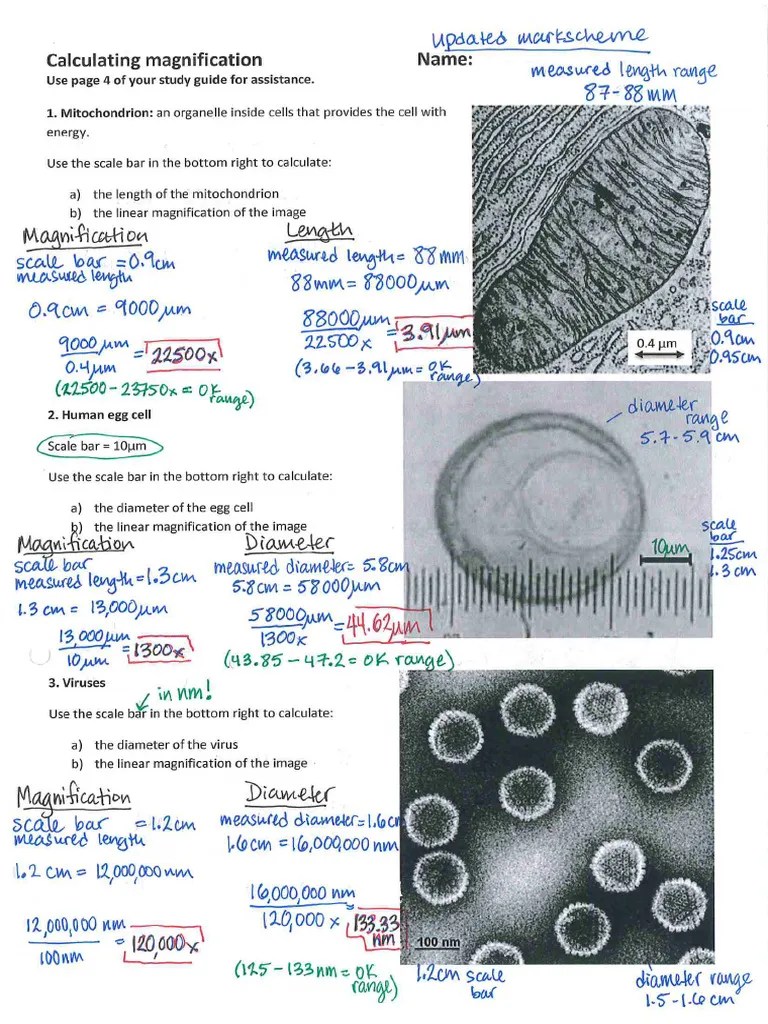 updated markscheme
Calculating magnification
Name:
Use page 4 of your study guide for assistance.
measured length range
87-88mm
1. Mitochondrion: an organelle inside cells that provides the cell with
energy.
Use the scale bar in the bottom right to calculate:
a) the length of the mitochondrion
b) the linear magnification of the image
Magnification
scale bar = 0.9cm
measured length
0.9cm = 9000µm
9000µm
0.4µm
= 22500x
(22500-23750x = OK
range)
Length
measured length = 88mm
88mm = 88000µm
88000µm
22500x
= 3.91µm
(3.66-3.91µm = OK
range)
0.4 µm
scale
bar
0.9cm
0.95cm
2. Human egg cell
Scale bar = 10µm
Use the scale bar in the bottom right to calculate:
a) the diameter of the egg cell
b) the linear magnification of the image
Magnification
scale bar
measured length = 1.3cm
1.3 cm = 13,000µm
13,000µm
10µm
= 1300x
Diameter
measured diameter = 5.8cm
5.8cm = 58000µm
58000µm
1300x
= 44.62µm
(43.85-47.2 = OK range)
diameter
range
5.7-5.9cm
10µm
scale
bar
1.25cm
1.3cm
3. Viruses
in nm!
Use the scale bar in the bottom right to calculate:
a) the diameter of the virus
b) the linear magnification of the image
Magnification
scale bar = 1.2cm
measured length
1.2 cm = 12,000,000nm
12,000,000 nm
100nm
= 120,000x
Diameter
measured diameter = 1.6cm
1.6cm = 16,000,000 nm
16,000,000 nm
120,000 x
= 133.33
nm
(125-133nm = OK
range)
100 nm
1.2cm scale
bar
diameter range
1.5-1.6cm